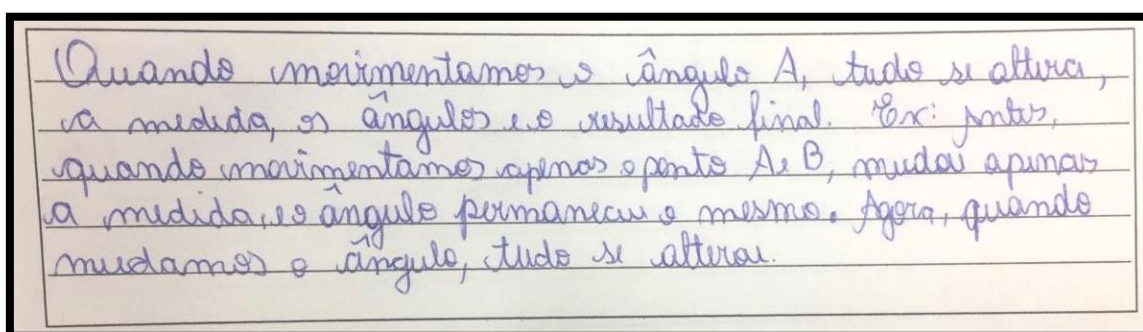 Quando movimentamos o ângulo A, tudo se altera,
a medida, os ângulos e o resultado final. Ex: Antes,
quando movimentamos apenas o ponto A e B, mudou apenas
a medida, e o ângulo permaneceu o mesmo. Agora, quando
mudamos o ângulo, tudo se alterou.